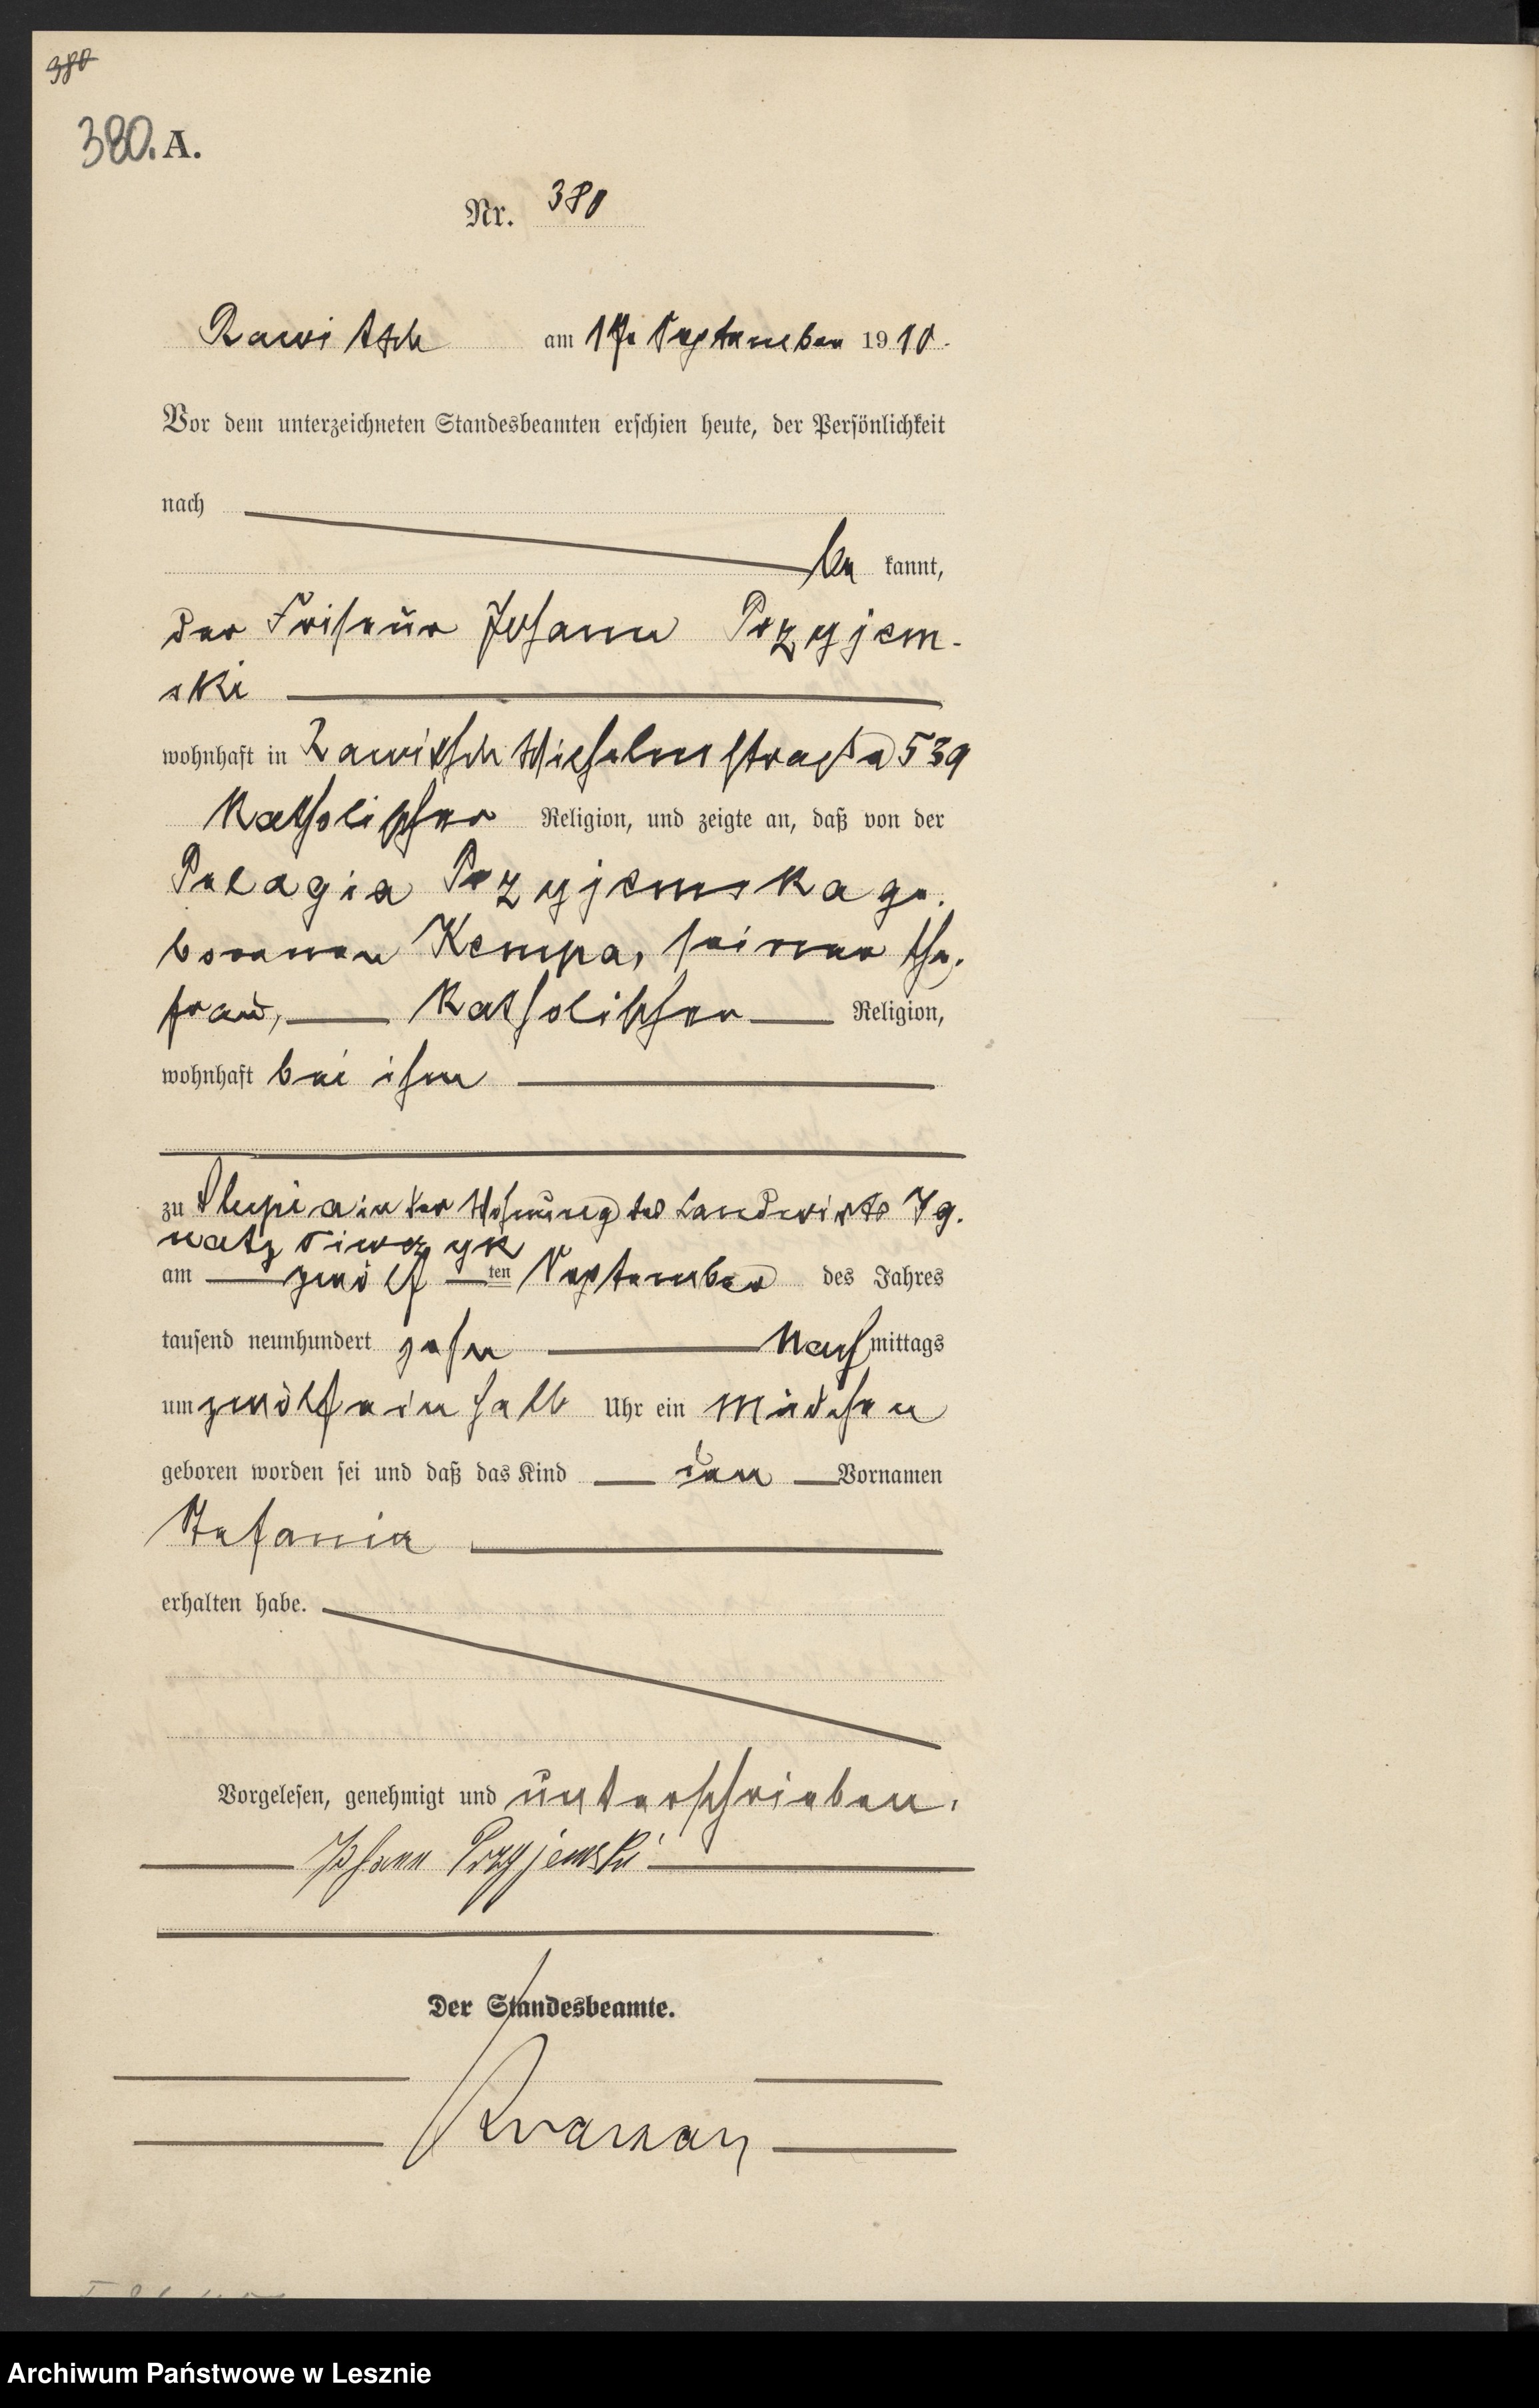 380
380. A.
Nr. 380
Rawitsch am 17. September 1910.
Vor dem unterzeichneten Standesbeamten erschien heute, der Persönlichkeit
nach
be kannt,
der Friseur Johann Przyjem-
ski
wohnhaft in Rawitsch Wilhelmstraße 539
katholischer Religion, und zeigte an, daß von der
Pelagia Przyjemska ge-
borenen Kempa, seiner Ehe-
frau, katholischer Religion,
wohnhaft bei ihm
zu Slupia in der Wohnung des Landwirts Ig-
natz
am zwölf ten September des Jahres
tausend neunhundert zehn Nachmittags
um zwölfeinhalb Uhr ein Mädchen
geboren worden sei und daß das Kind den Vornamen
Stefania
erhalten habe.
Vorgelesen, genehmigt und unterschrieben.
Johann Przyjemski
Der Standesbeamte.
Archiwum Państwowe w Lesznie